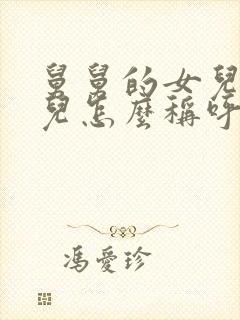 舅舅的女兒
兒怎麼稱呼
馮愛珍